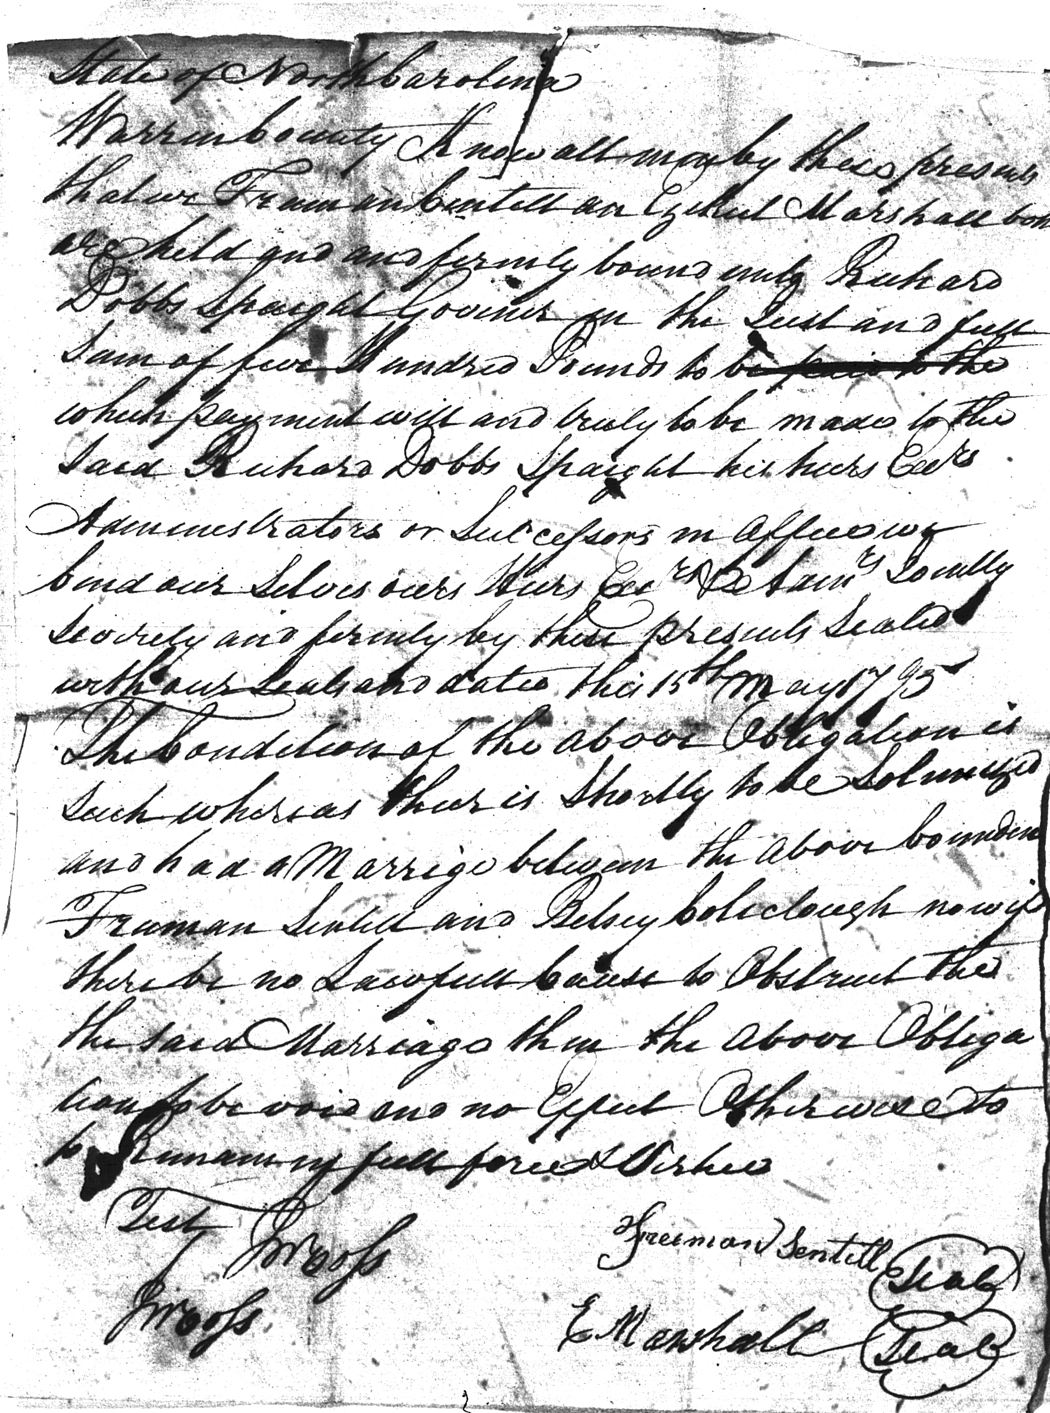 State of North Carolina
Warren County Know all men by these presents
that we Freeman Centell an Ezekiel Marshall bon
are held and and firmly bound unto Richard
Dobbs Spaight Governer in the Just and full
Sum of five Hundred Pounds to be paid to the
which payment will and truly to be made to the
Said Richard Dobbs Spaight his heirs Exrs
Administrators or Successors in Office we
bind our Selves ours Heirs Exrs & Admrs Joinlly
Severely and firmly by these presents Sealed
with our Seals and dated this 15th May 1795
The Condition of the above Obligation is
Such whereas their is Shortly to be Solmnized
and had a Marrige between the above bounden
Freeman Sentell and Betsey Coleclough now if
there be no Lawfull Cause to Obstruct the
the said Marriage then the above Obliga
tion to be void and no Effect Otherwise to
to Remain in full force & Virtue
Test
J Moss
J Moss
Freeman Sentell Seal
E Marshall Seal